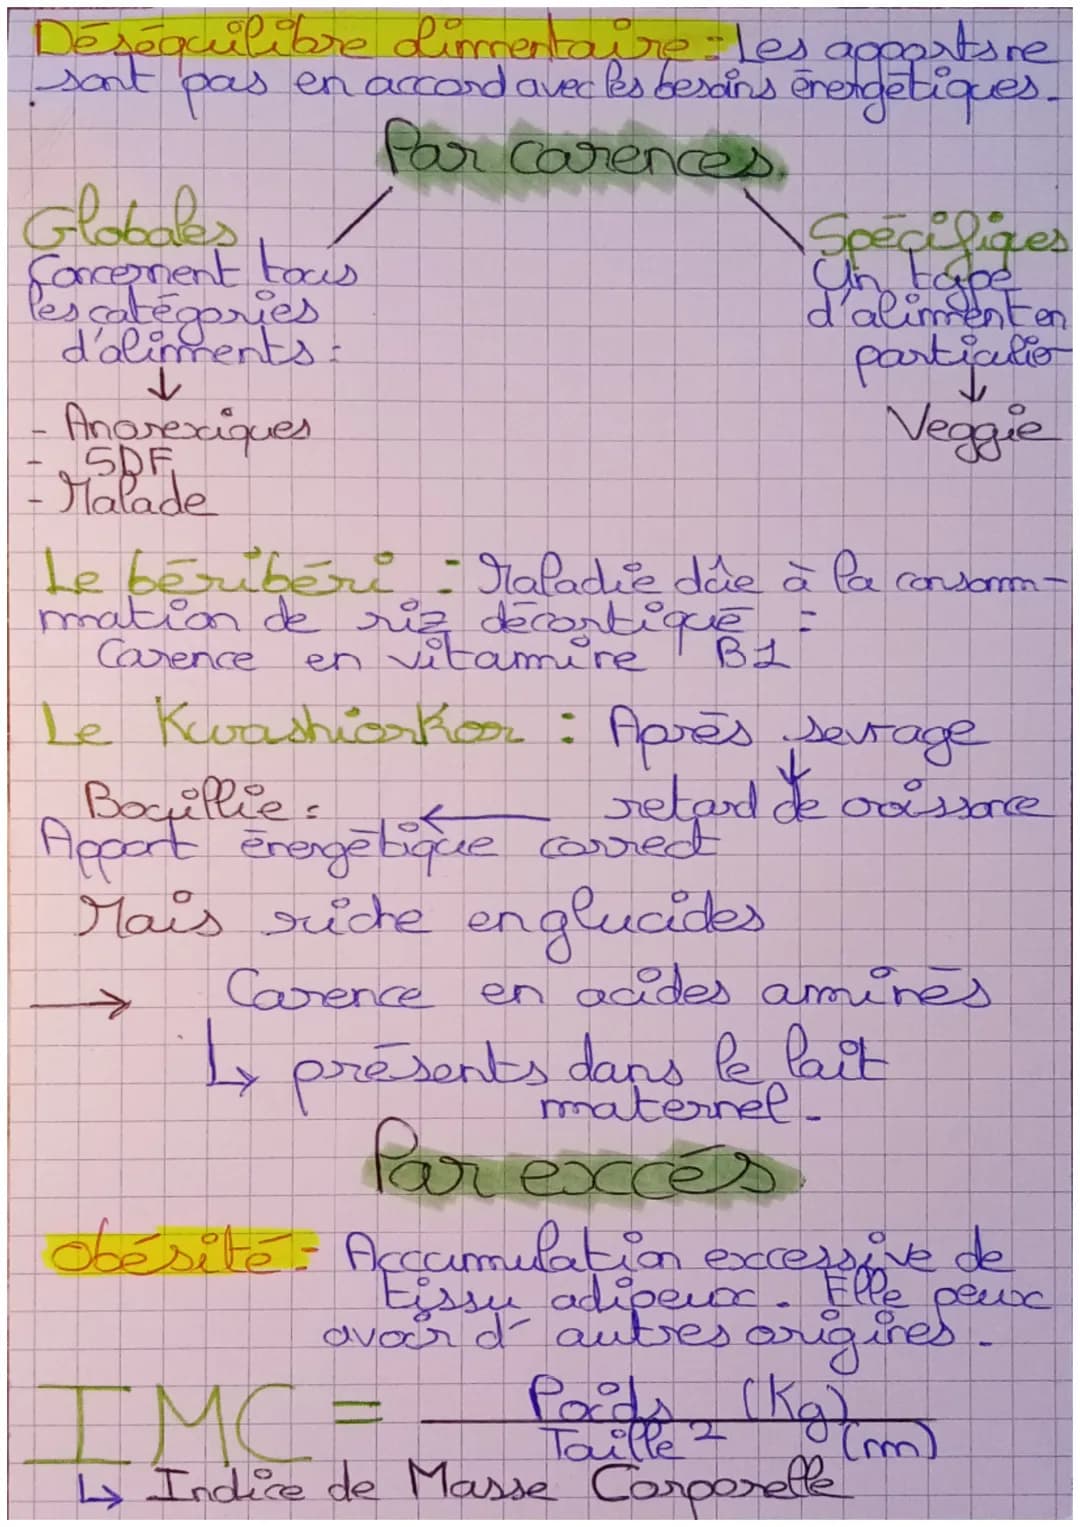 Déséquilibre alimentaire : Les apports ne
sont pas en accord avec les besoins énergétiques.
Par carences.
Globales
Concernent tous
les catégories
d'aliments :
↓
- Anorexiques
- SDF
- Malade
Spécifiques
Un type
d'aliment en
particulier
↓
Veggie
Le béribéri : Maladie dûe à la consomm-
mation de riz décortiqué =
Carence en vitamine B1
Le Kwashiorkor : Après sevrage
↓
retard de croissance
←
Bouillie :
Apport énergétique correct
Mais riche en glucides
→ Carence en acides aminés
↳ présents dans le lait
maternel.
Par excès
Obésité : Accumulation excessive de
tissu adipeux. Elle peux
avoir d'autres origines.
IMC = Poids (Kg)
Taille ² (m)
↳ Indice de Masse Corporelle